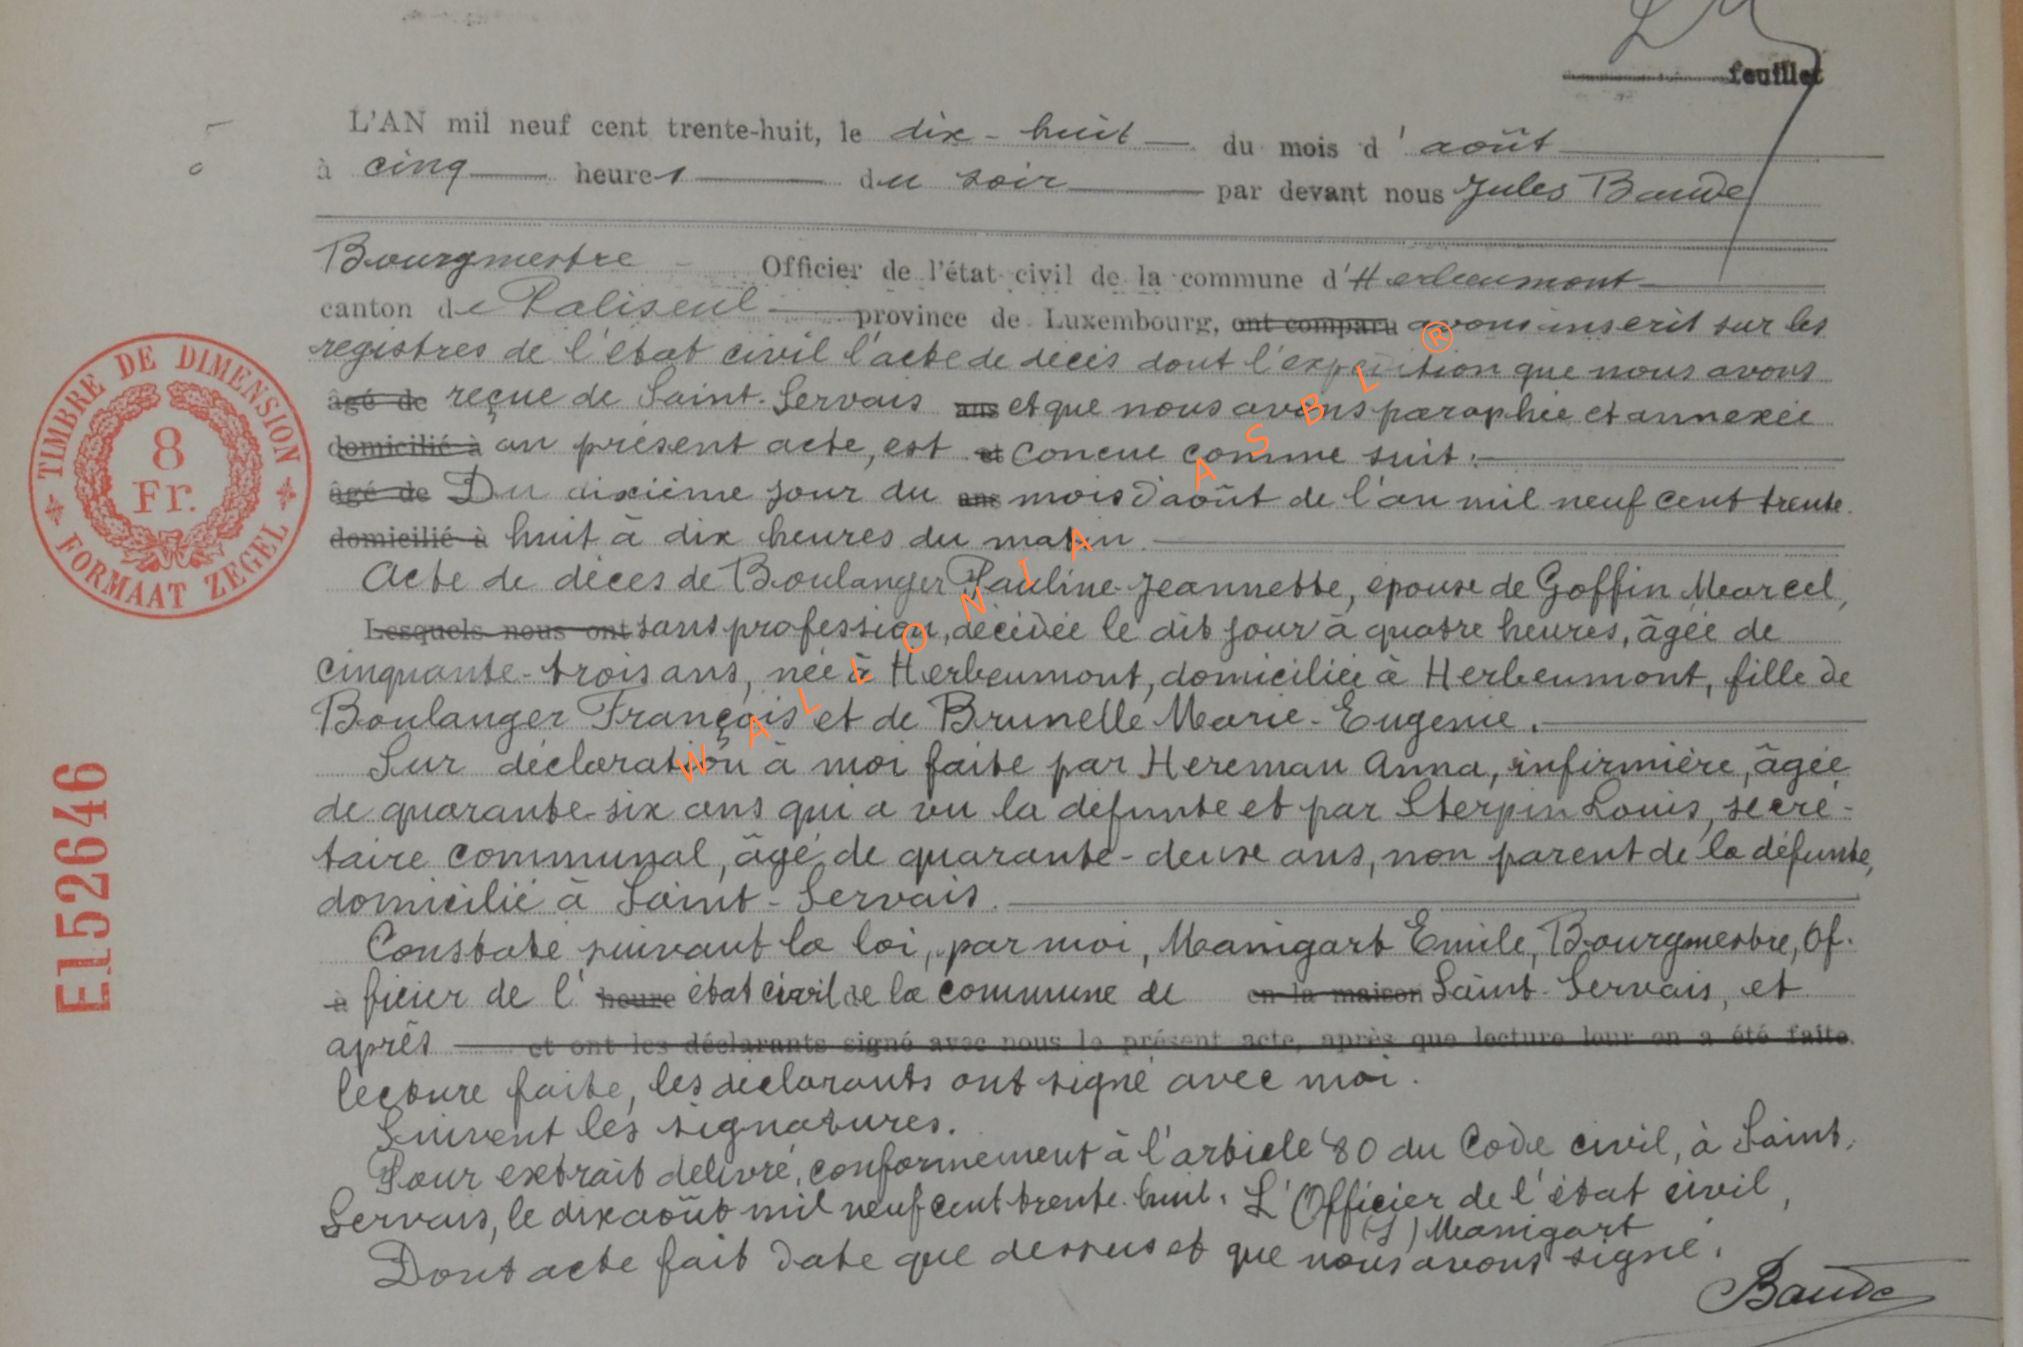 feuillet
L'AN mil neuf cent trente-huit, le dix-huit du mois d'août
à cinq heures du soir par devant nous Jules Baude
Bourgmestre Officier de l'état civil de la commune d'Herbeumont
canton de Paliseul province de Luxembourg, ont comparu avons inscrit sur les
registres de l'état civil l'acte de décès dont l'expedition que nous avons
âgé de reçue de Saint-Servais ans et que nous avons paraphée et annexée
domicilié à au présent acte, est et concue comme suit :
âgé de Du dixième jour du ans mois d'août de l'an mil neuf cent trente
domicilié à huit à dix heures du matin.
Acte de décès de Boulanger Pauline-Jeannette, épouse de Goffin Marcel,
Lesquels nous ont sans profession, décédée le dit jour à quatre heures, âgée de
cinquante-trois ans, née à Herbeumont, domiciliée à Herbeumont, fille de
Boulanger François et de Brunelle Marie-Eugenie.
Sur déclaration à moi faite par Hereman Anna, infirmière, âgée
de quarante-six ans qui a vu la défunte et par Sterpin Louis, secré-
taire communal, âgé de quarante-deux ans, non parent de la défunte,
domicilié à Saint-Servais.
Constaté suivant la loi, par moi, Manigart Emile, Bourgmestre, Of-
à ficier de l' heure état civil de la commune de en la maison Saint-Servais, et
après et ont les déclarants signé avec nous le présent acte, après que lecture leur en a été faite.
lecture faite, les déclarants ont signé avec moi.
Suivent les signatures.
Pour extrait délivré, conformement à l'article 80 du Code civil, à Saint-
Servais, le dix août mil neuf cent trente-huit. L'Officier de l'état civil,
(S) Manigart
Dont acte fait date que dessus et que nous avons signé.
Baude
TIMBRE DE DIMENSION
8
Fr.
FORMAAT ZEGEL
E152646
WALLONIA ASBL ®